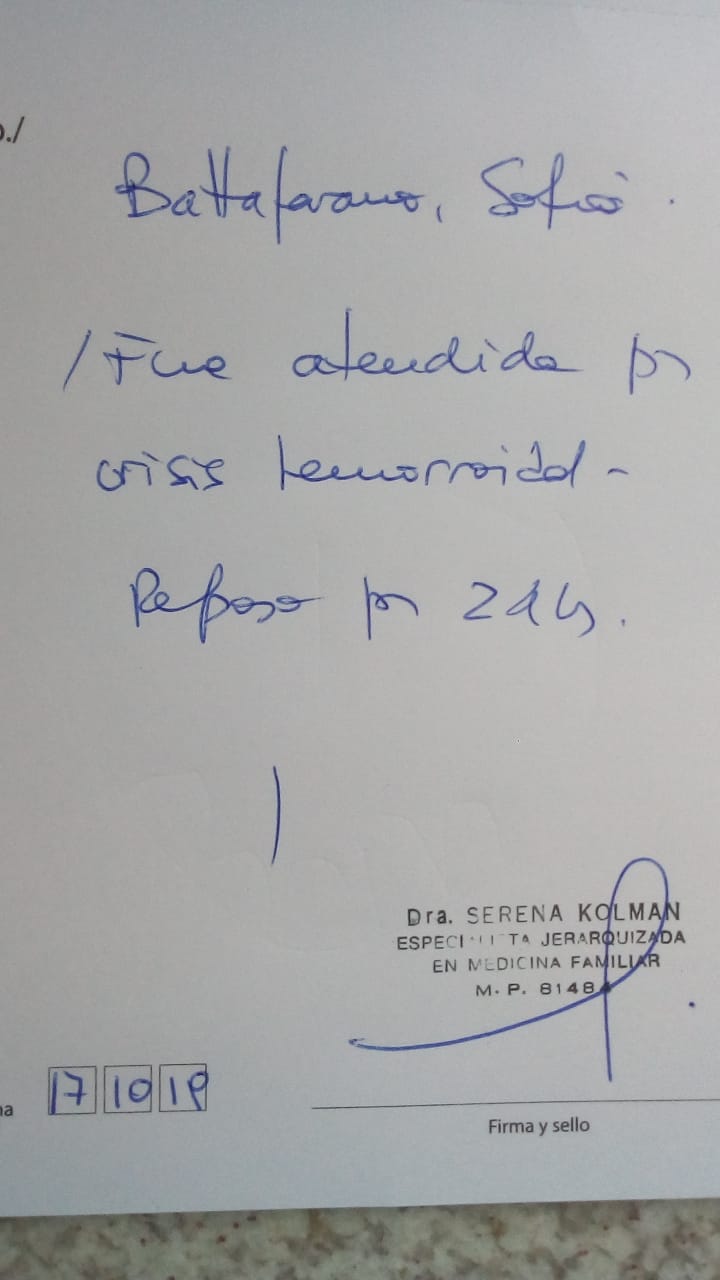 Battafarano, Sofía.
/ Fue atendida por
crisis hemorroidal -
Reposo por 24 hs.
Dra. SERENA KOLMAN
JERARQUIZADA
EN MEDICINA FAMILIAR
M. P. 8148
17 10 19
Firma y sello